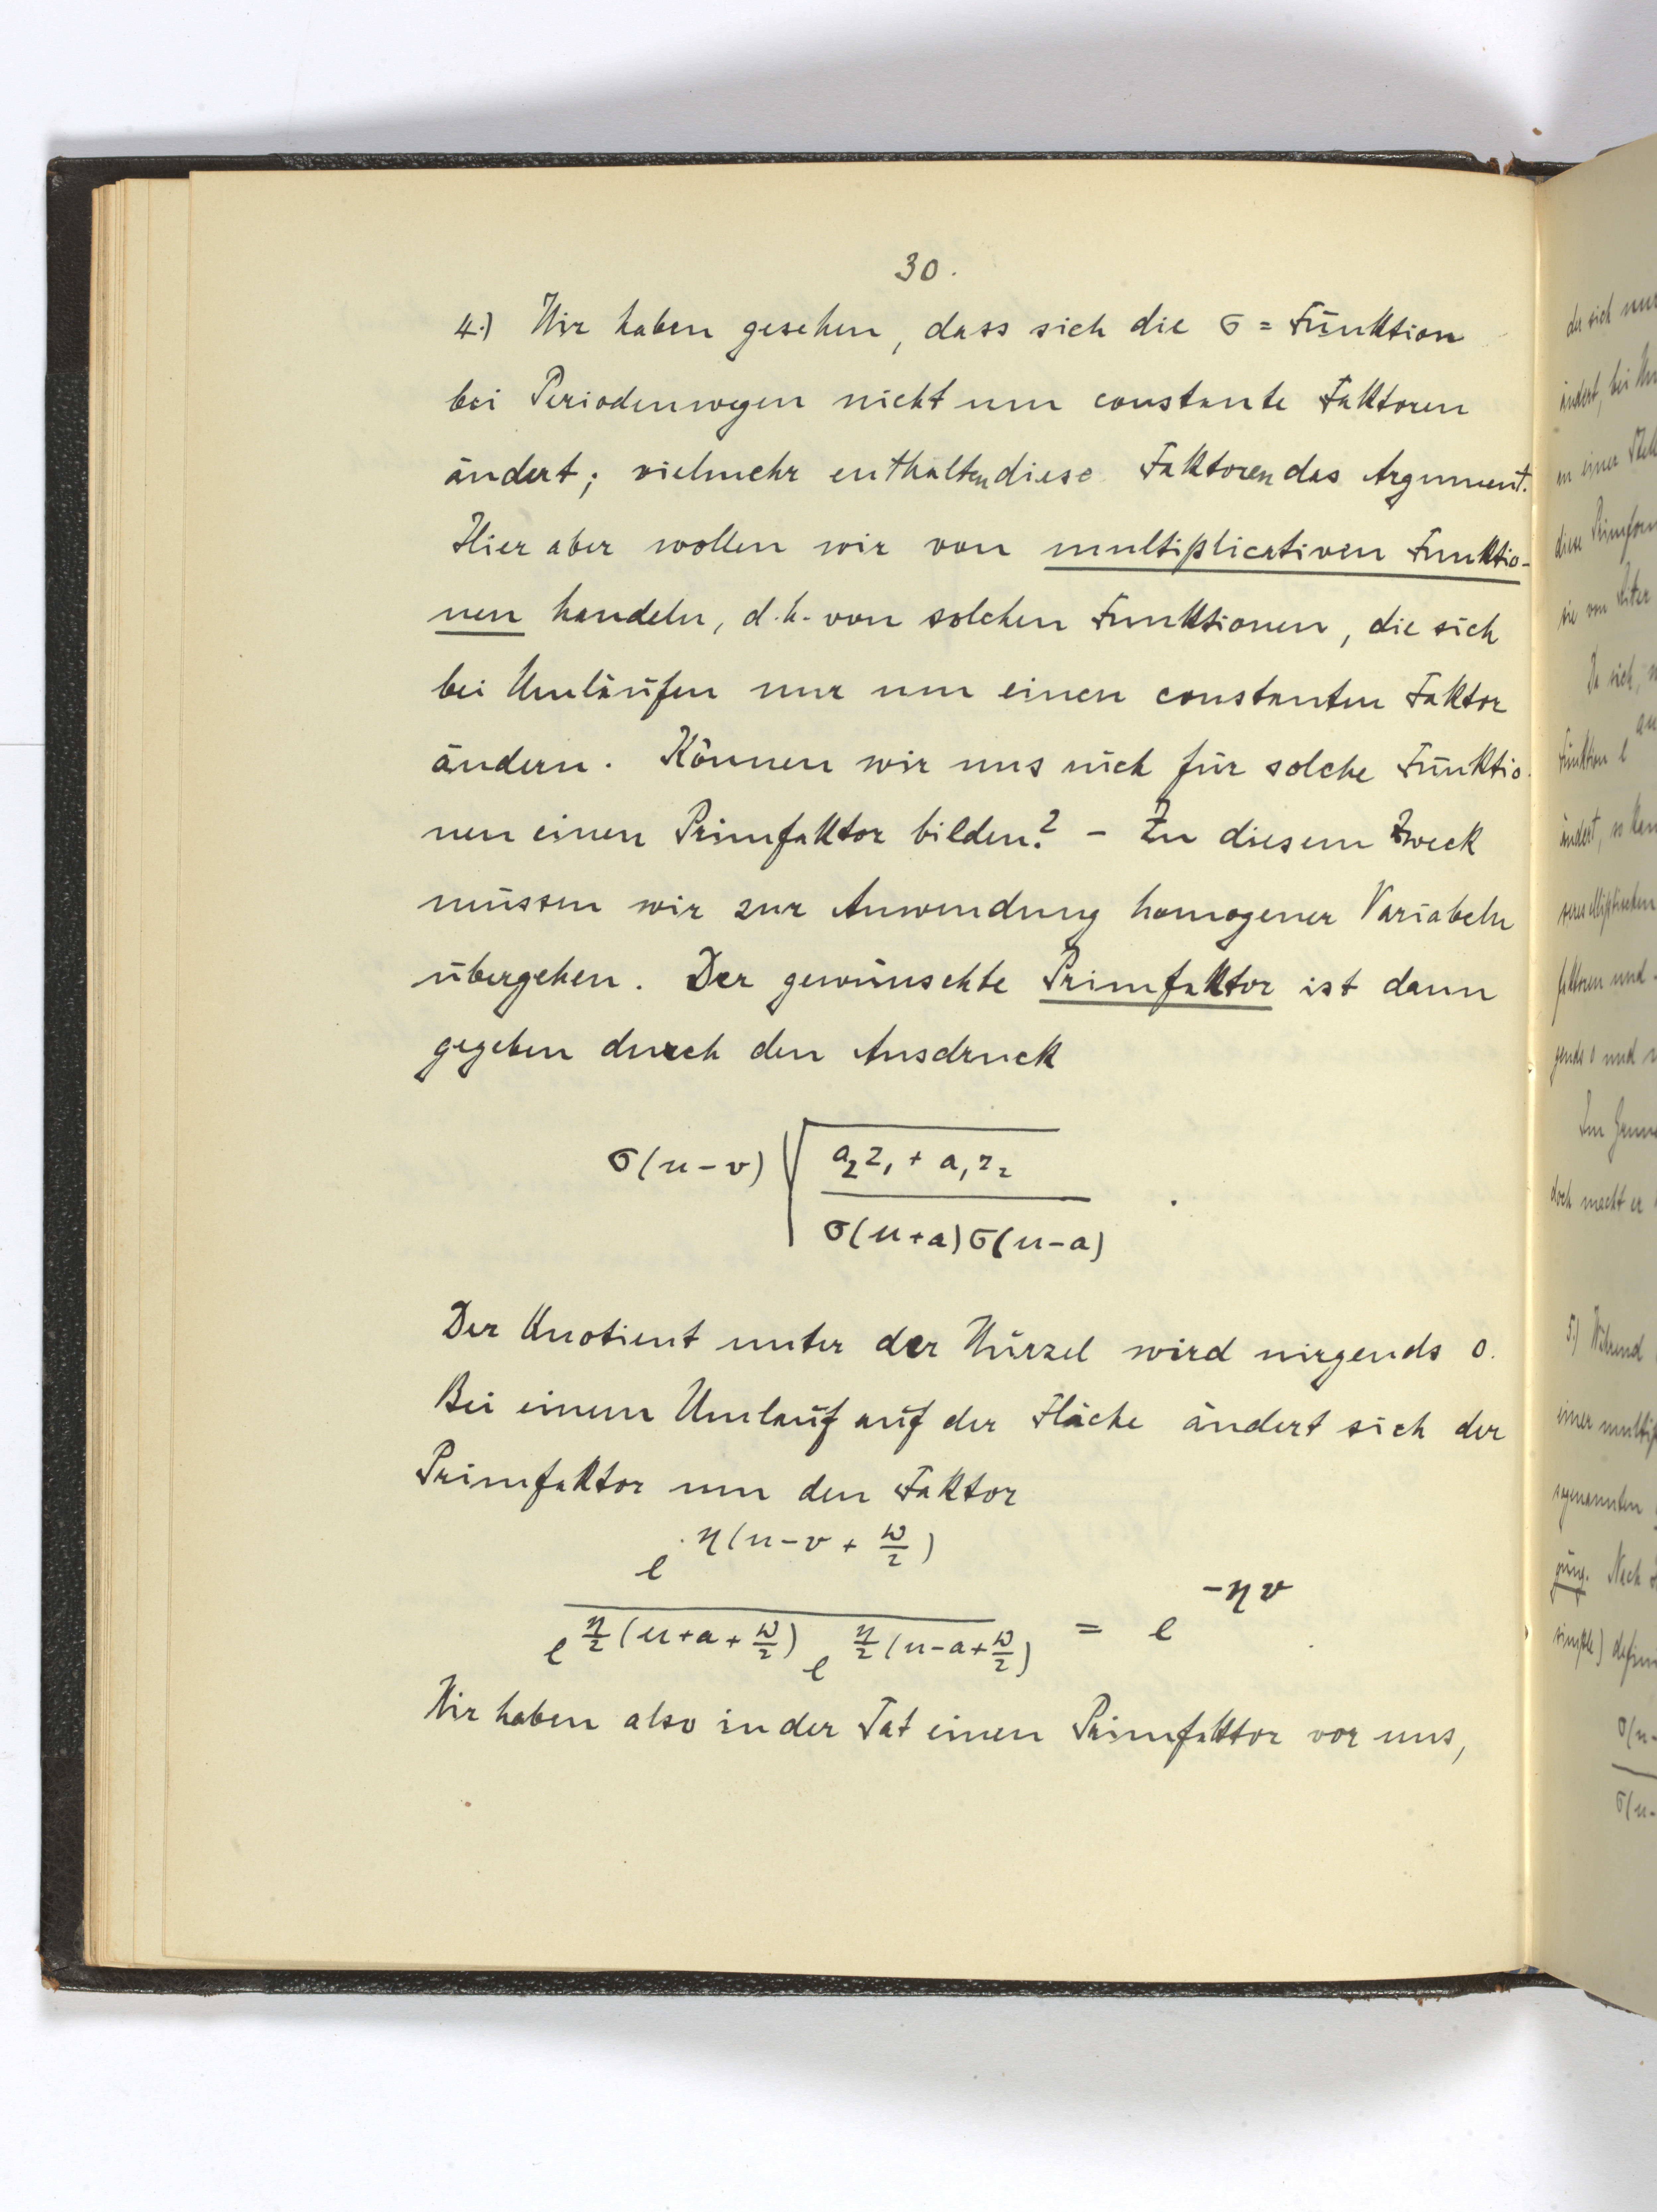 30.
4.) Wir haben gesehen, dass sich die σ = Funktion
bei Periodenwegen nicht um constante Faktoren
ändert; vielmehr enthalten diese Faktoren das Argument.
Hier aber wollen wir von multiplicativen Funktio-
nen handeln, d.h. von solchen Funktionen, die sich
bei Umläufen nur um einen constanten Faktor
ändern. Können wir uns auch für solche Funktio-
nen einen Primfaktor bilden? – Zu diesem Zweck
müssen wir zur Anwendung homogener Variabeln
übergehen. Der gewünschte Primfaktor ist dann
gegeben durch den Ausdruck
σ(u-v) √((a₂z₁ + a₁z₂) / (σ(u+a)σ(u-a))) .
Der Quotient unter der Wurzel wird nirgends 0.
Bei einem Umlauf auf der Fläche ändert sich der
Primfaktor um den Faktor
e^{η(u-v+ω/2)} / (e^{η/2(u+a+ω/2)} e^{η/2(u-a+ω/2)}) = e^{-ηv} .
Wir haben also in der Tat einen Primfaktor vor uns,
der sich nur
ändert, bei
an einer
diese
sie von
Da sich,
Funktion e
ändert, so
faktoren und
gends 0 und
doch macht er
5.) Während
einer
sogenannten
Nach
σ(u-
σ(u-